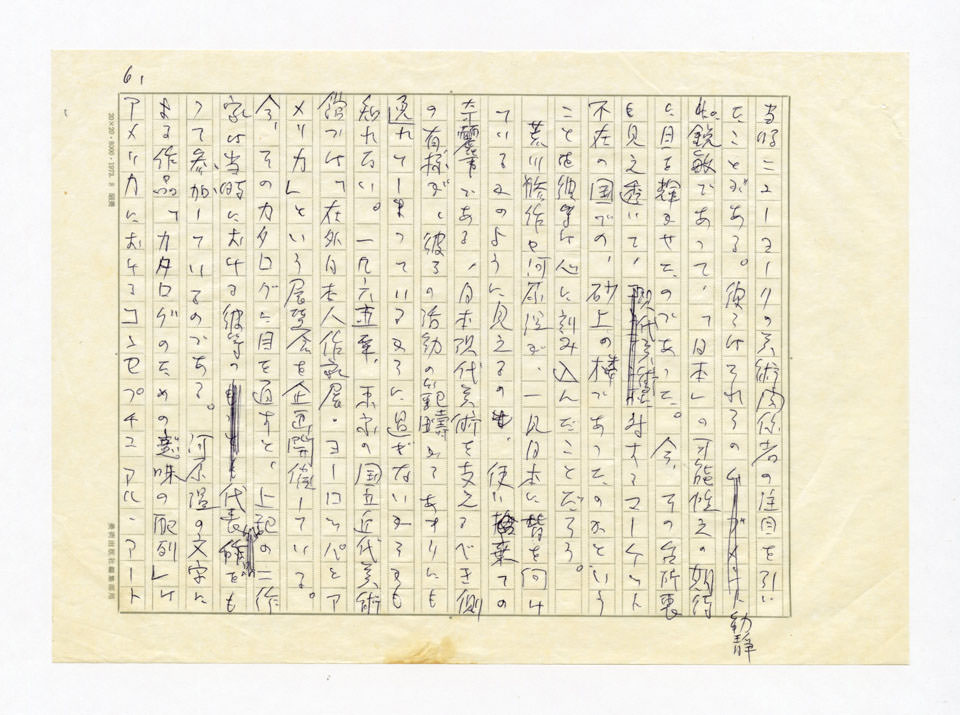 6,
当時ニューヨークの美術関係者の注目を引い
たことがある。彼らはそれらの動静
に鋭敏であって、「日本」の可能性え の期待
に目を輝かせたのであった。今、その台所裏
も見え透いて、対するマーケット
不在の国での、砂上の楼であったのかという
ことを彼等は心に刻み込んだことだろう。
荒川修作や河原温が、一見日本に背を向け
ているかのように見えるのも、使い捨ての
である、日本現代美術を支えるべき側
の有様が、彼らの活動の範疇から あまりにも
遅れてしまっているからに過ぎないからかも
知れない。一九六五年、東京の国立近代美術
館では「在外日本人作家展・ヨーロッパとア
メリカ」という展覧会を企画開催している。
今、そのカタログに目を通すと、上記の二作
家は当時における彼等の代表作をも
って参加しているのである。河原温の文字に
よる作品「カタログのための意味の配列」は
アメリカにおけるコンセプチュアル・アート
20×20・8000・1973.8